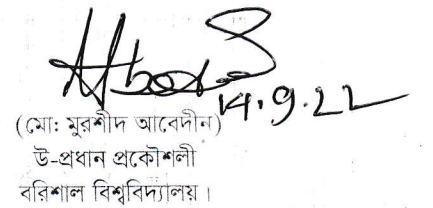 14.9.22
(মো: মুরশীদ আবেদীন)
উ-প্রধান প্রকৌশলী
বরিশাল বিশ্ববিদ্যালয়।